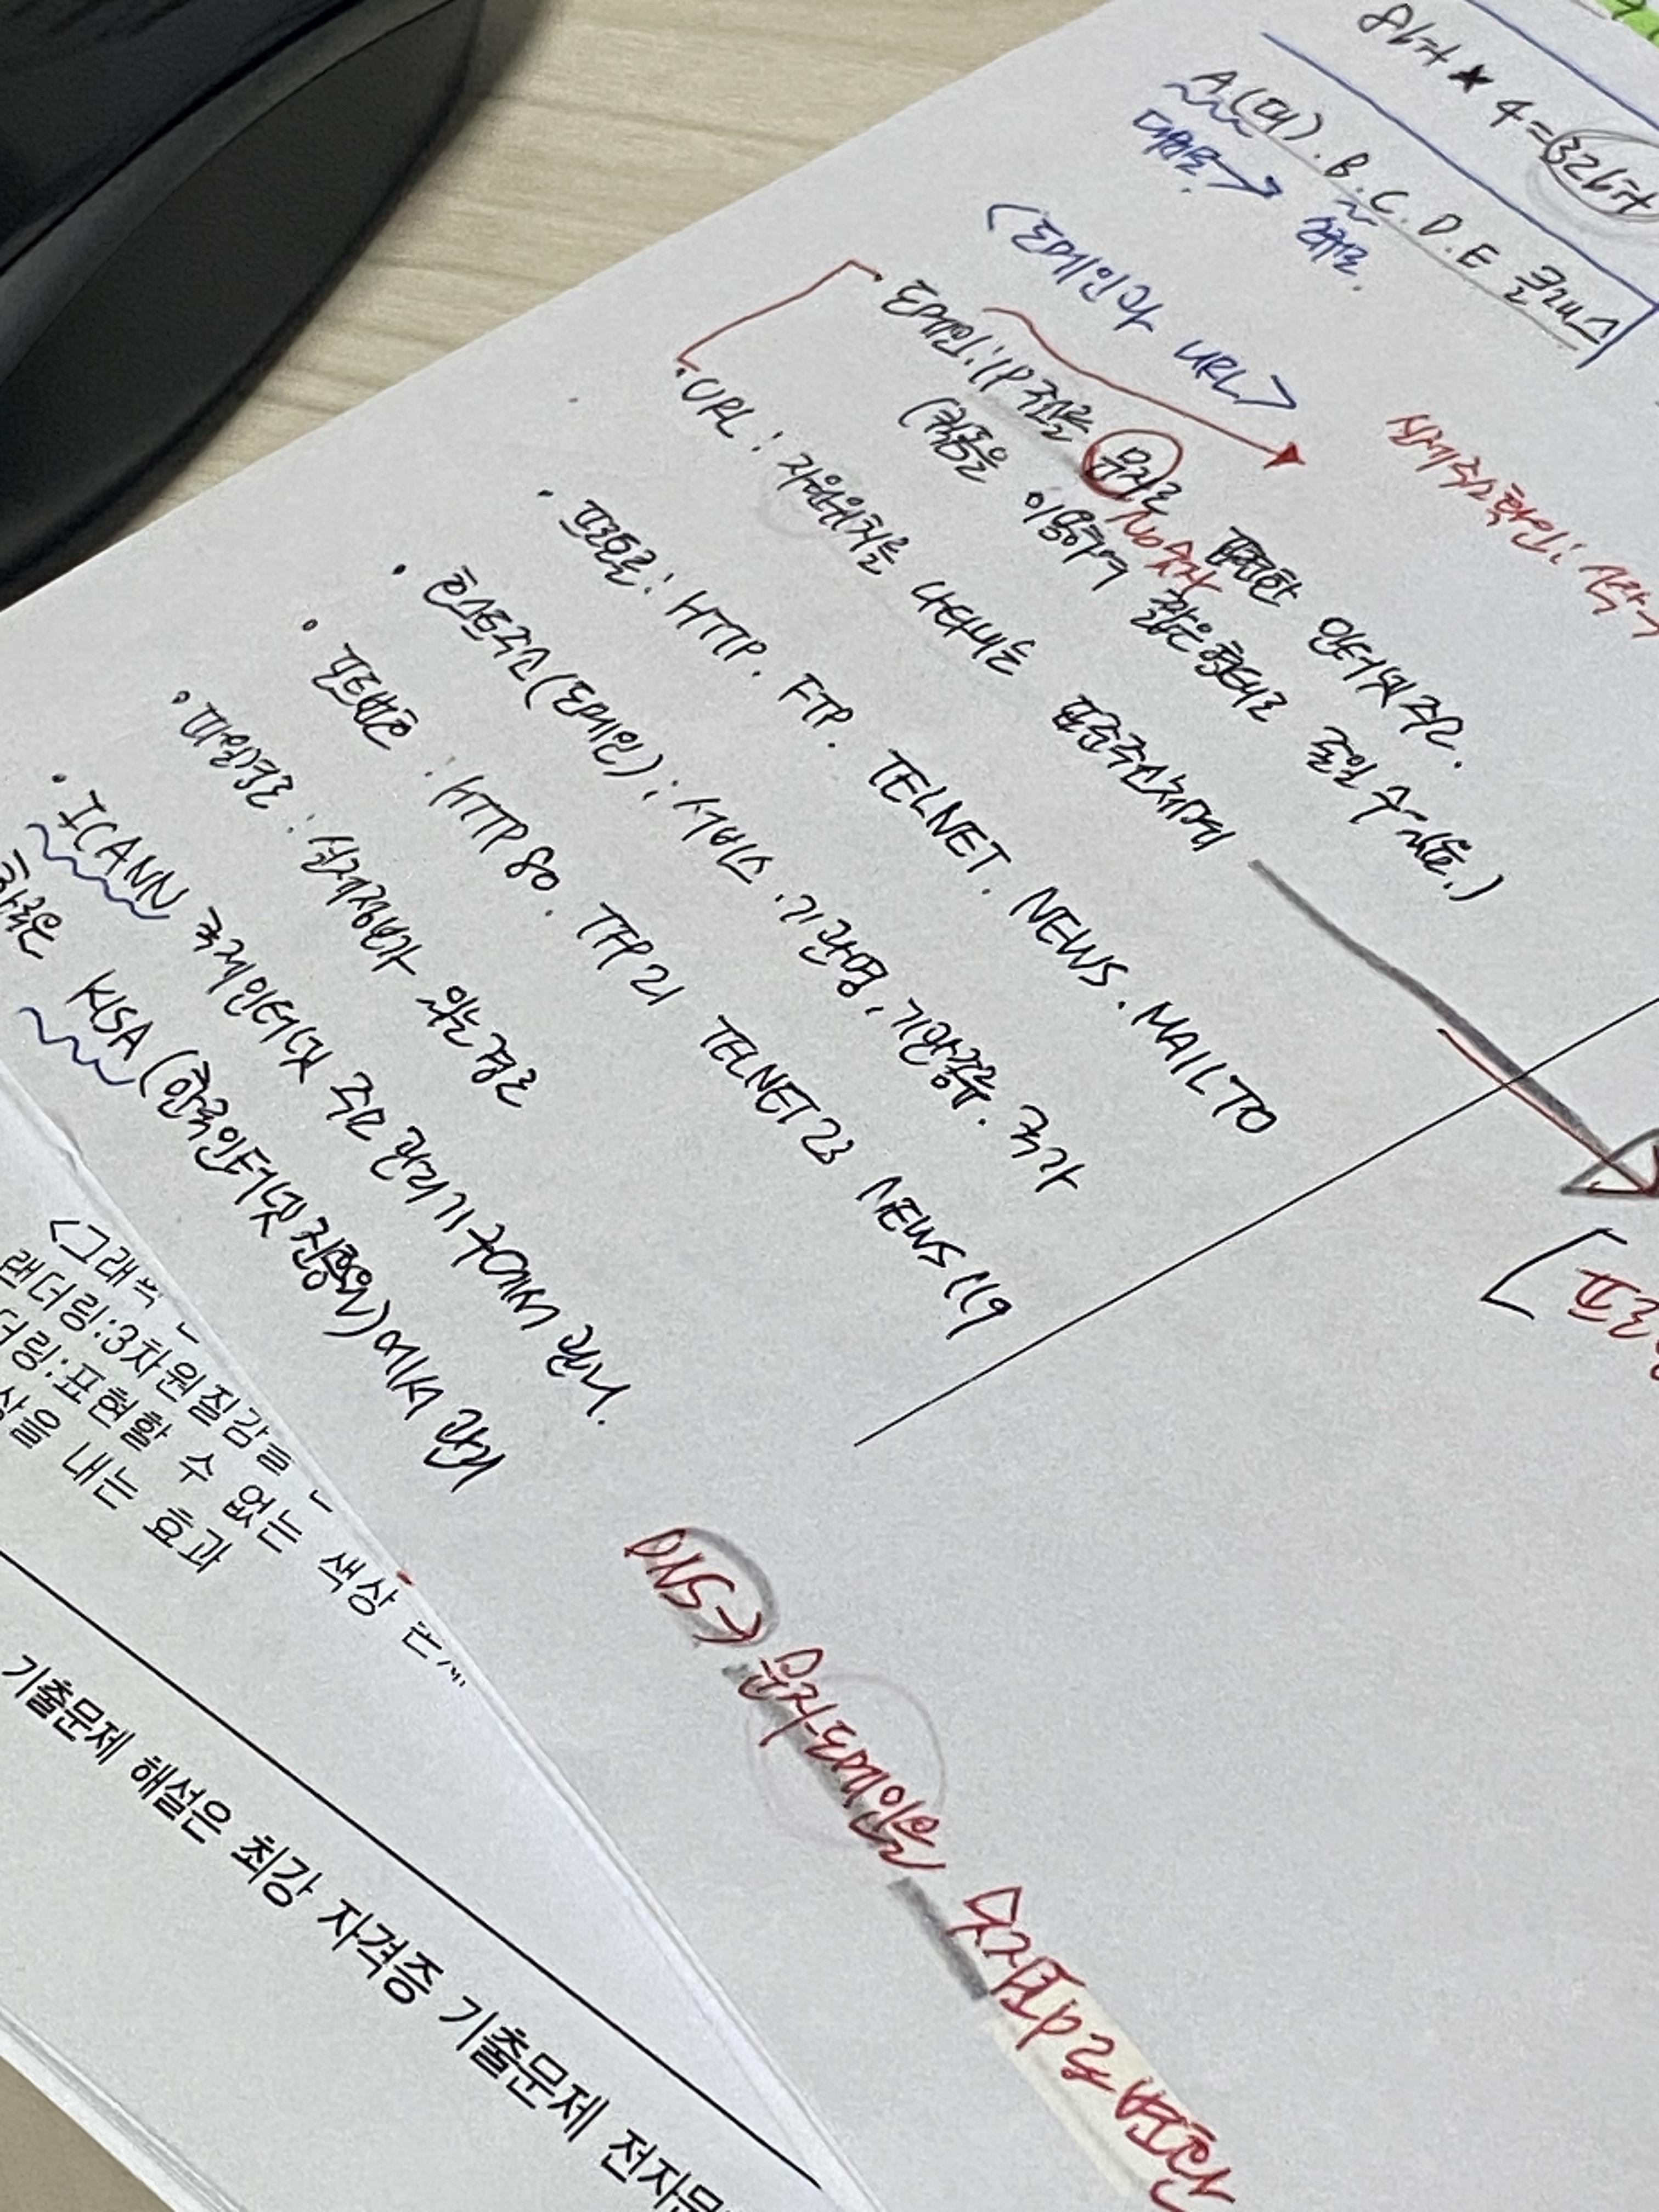 8bit ★ 4 = 32bit
A(대). B. C. D. E 클래스
<도메인과 URL>
· 도메인: IP주소를 문자로 표현한 인터넷주소.
No숫자
(쿽돔은 이용하여 같은형태로 줄일 수
· URL: 자원위치를 나타내는 표준주소체계
· 프로토콜: HTTP. FTP. TELNET. NEWS. MAILTO
· 호스트주소(도메인): 서비스. 기관명. 기관종류. 국가
· 포트번호: HTTP 80. TFP 21 TELNET 23 NEWS 119
· 파일경로: 실제정보가 있는 경로
· ICANN 국제인터넷 주소 관리기구에서 관리.
KISA (한국인터넷진흥원)에서 관리
DNS→ 문자도메인을 숫자IP로 변환
<그래픽
랜더링:3차원질감을
더링:표현할 수 없는 색상
상을 내는 효과
기출문제 해설은 최강 자격증 기출문제 전자문